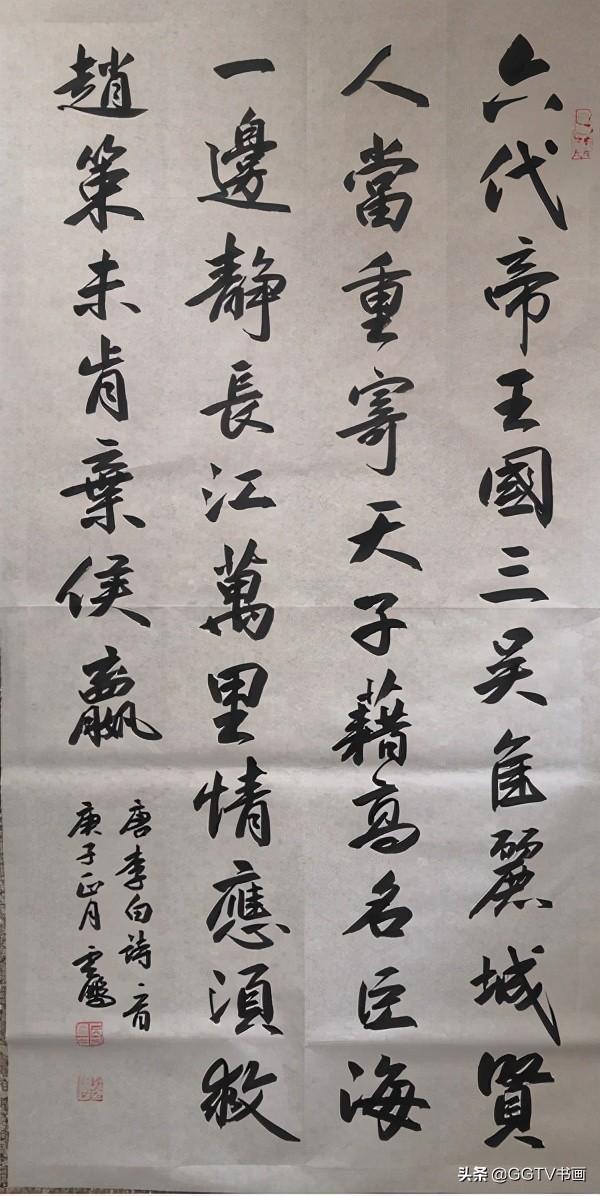 六代帝王國三吳佳麗城賢
人當重寄天子藉高名巨海
一邊靜長江萬里情應須救
趙策未肯棄侯嬴
唐李白詩首
庚子正月
头条 @GGTV书画